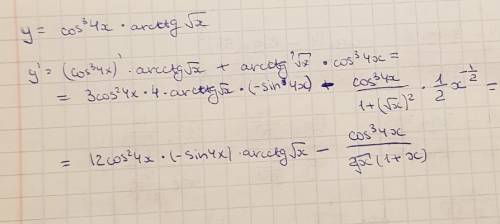 y = cos³4x · arcctg √x
y' = (cos³4x)' · arcctg √x + arcctg' √x · cos³4x =
= 3cos²4x · 4 · arcctg √x · (-sin 4x) - cos³4x / (1+(√x)²) · 1/2 x^(-1/2) =
= 12cos²4x · (-sin 4x) · arcctg √x - cos³4x / (2√x (1+x))